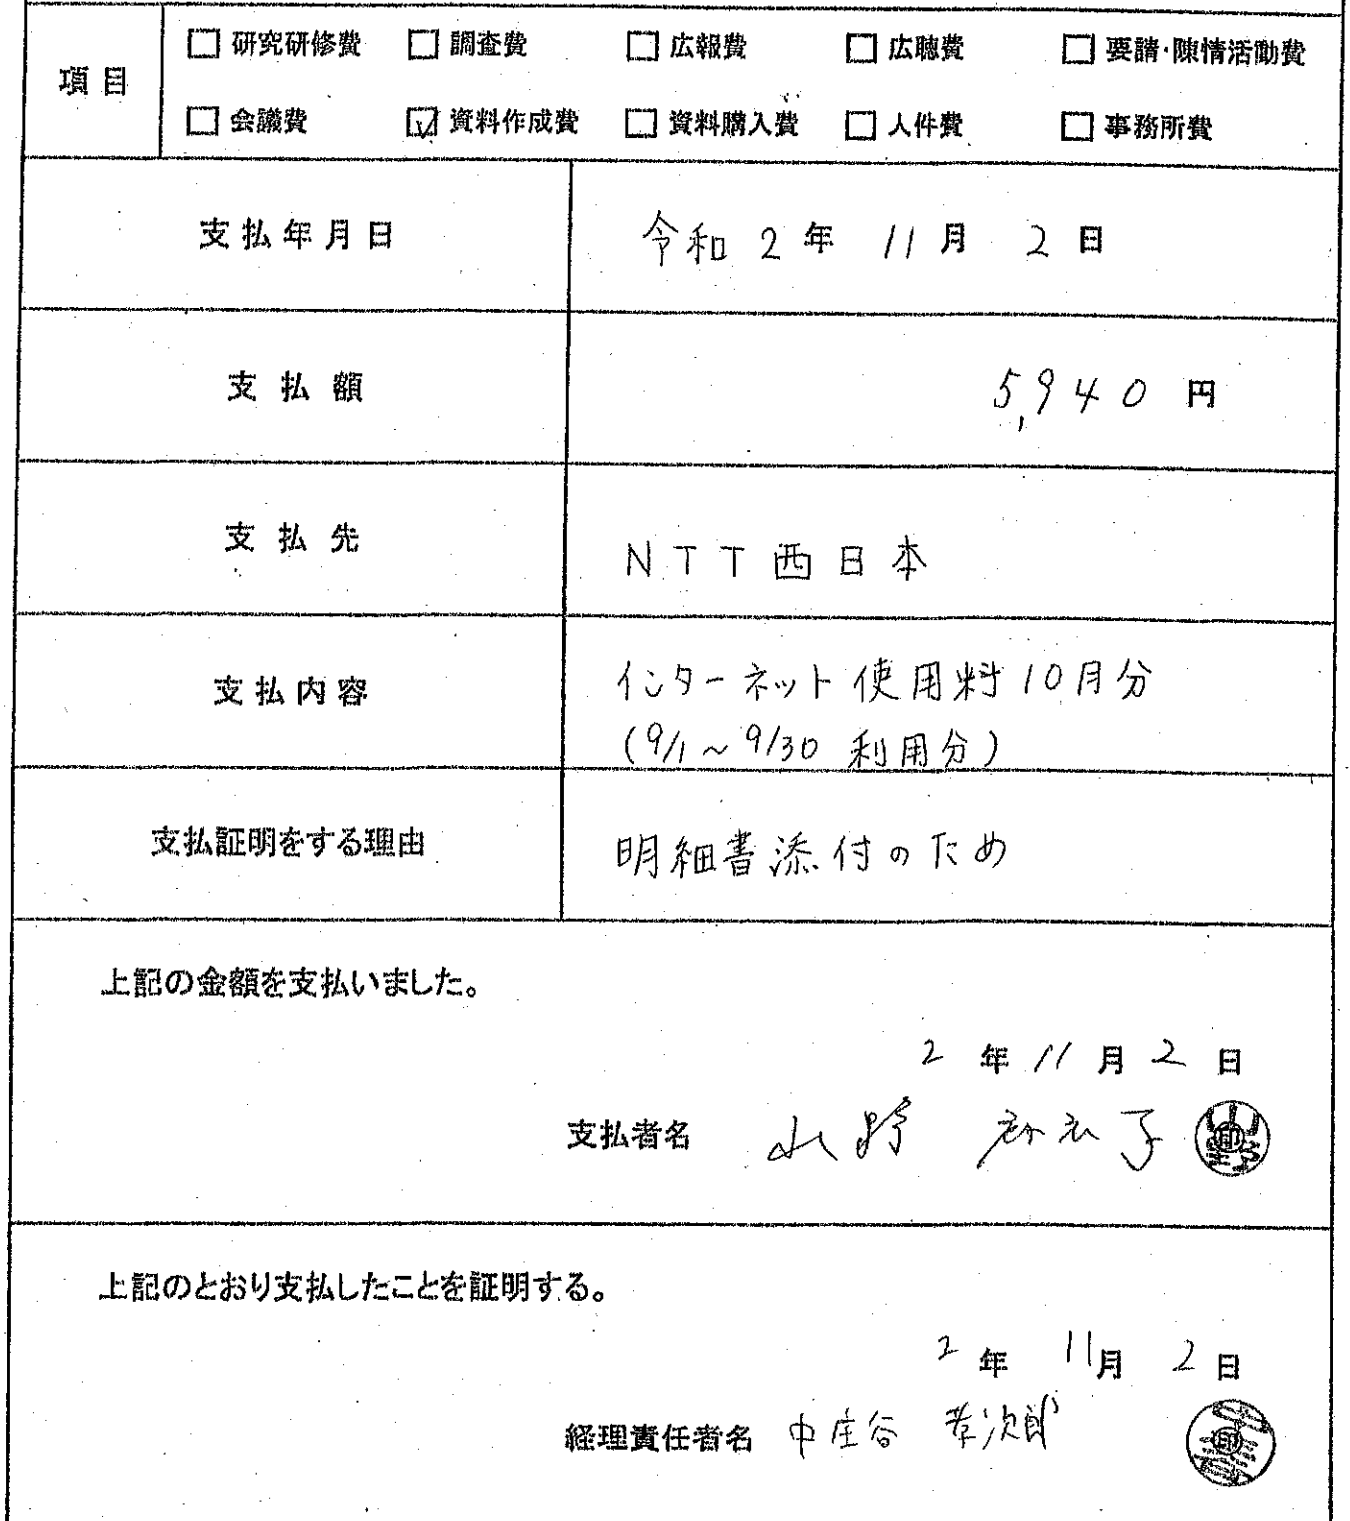 項目
□ 研究研修費 □ 調査費 □ 広報費 □ 広聴費 □ 要請・陳情活動費
□ 会議費 ☑ 資料作成費 □ 資料購入費 □ 人件費 □ 事務所費
支払年月日 令和 2 年 11 月 2 日
支払額 5,940 円
支払先 NTT西日本
支払内容 インターネット使用料10月分
(9/1~9/30 利用分)
支払証明をする理由 明細書添付のため
上記の金額を支払いました。
2 年 11 月 2 日
支払者名 山野
上記のとおり支払したことを証明する。
2 年 11 月 2 日
経理責任者名 中庄谷 孝次郎